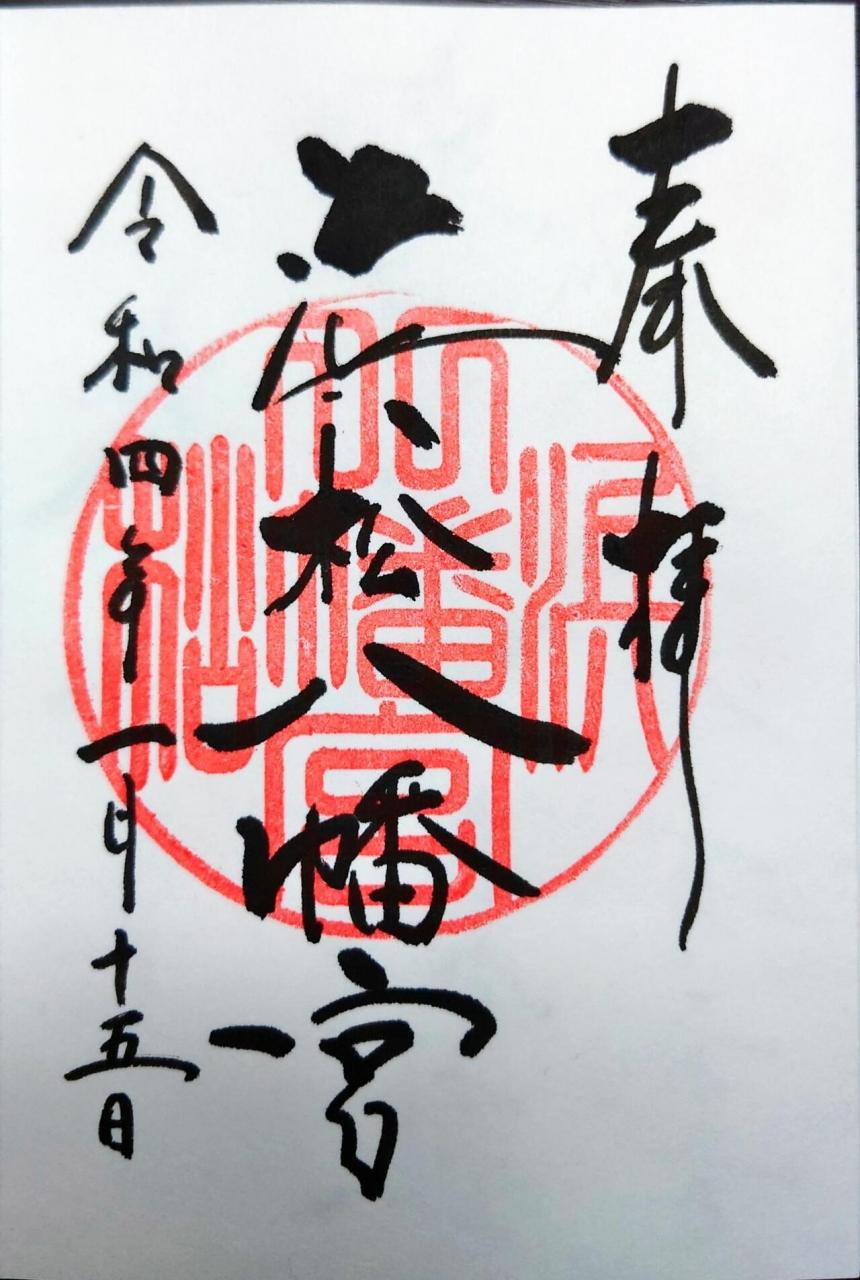 奉拝
浜松八幡宮
令和四年一月十五日
浜松八幡宮